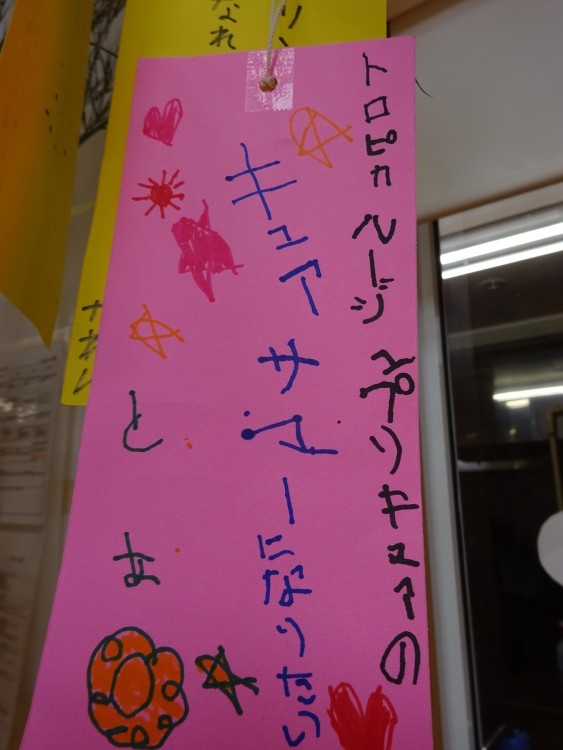 トロピカルージュプリキュアの
キュアサマーになりたい
とあ
なれ